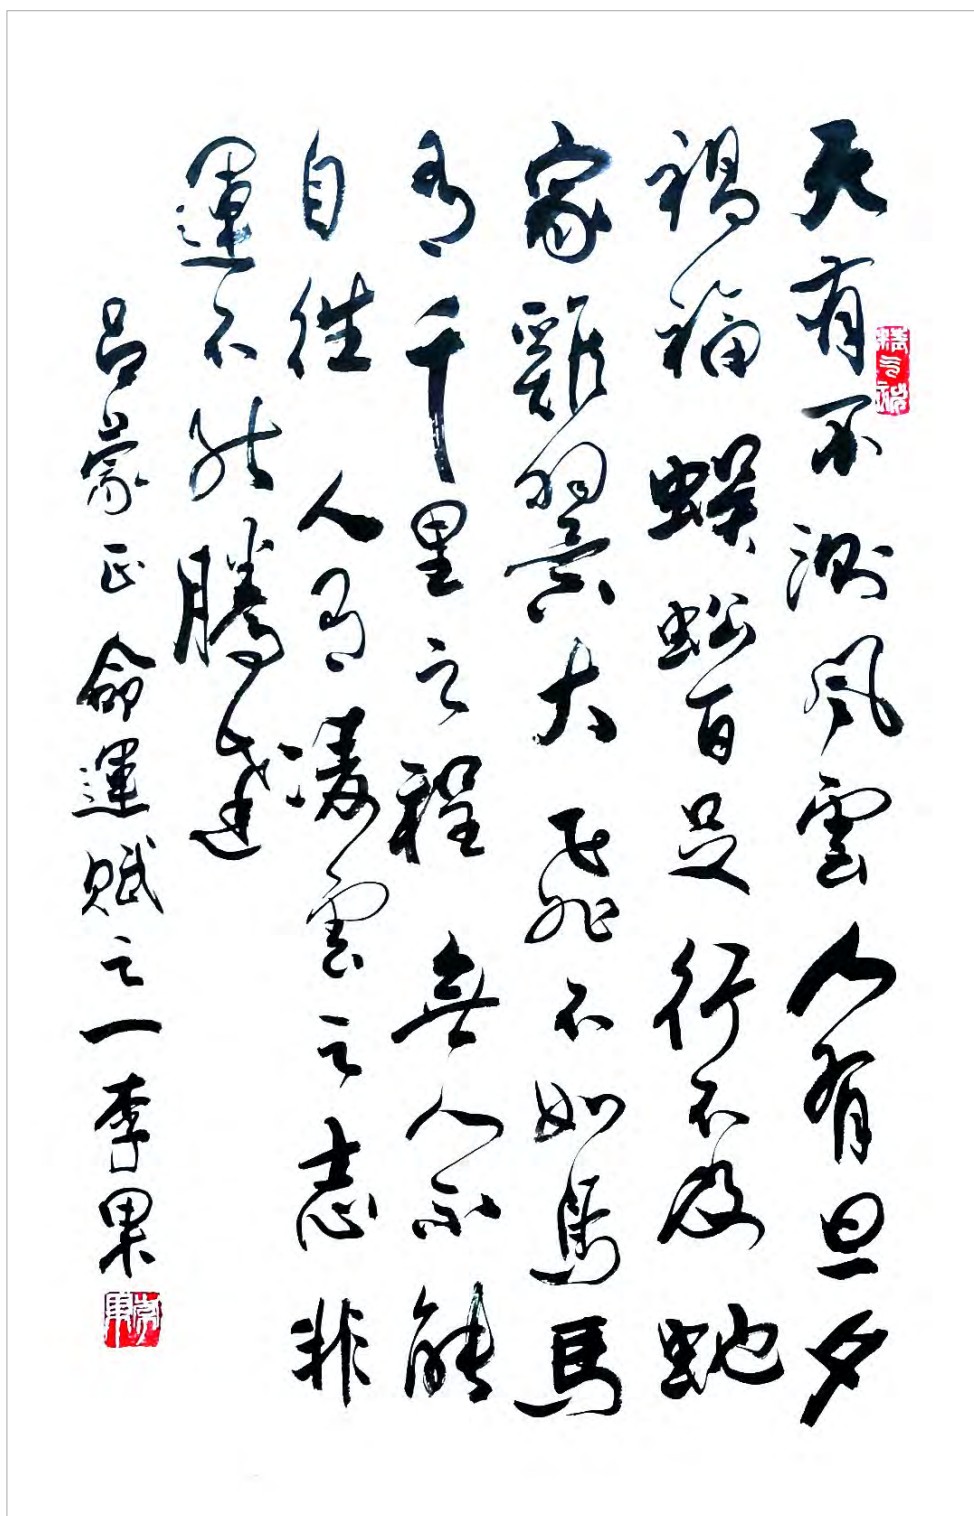 天有不測風雲人有旦夕
禍福蜈蚣百足行不及蛇
家雞翼大飛不如鳥馬
有千里之程無人不能
自往人有凌雲之志非
運不能騰達
呂蒙正命運賦之一李果